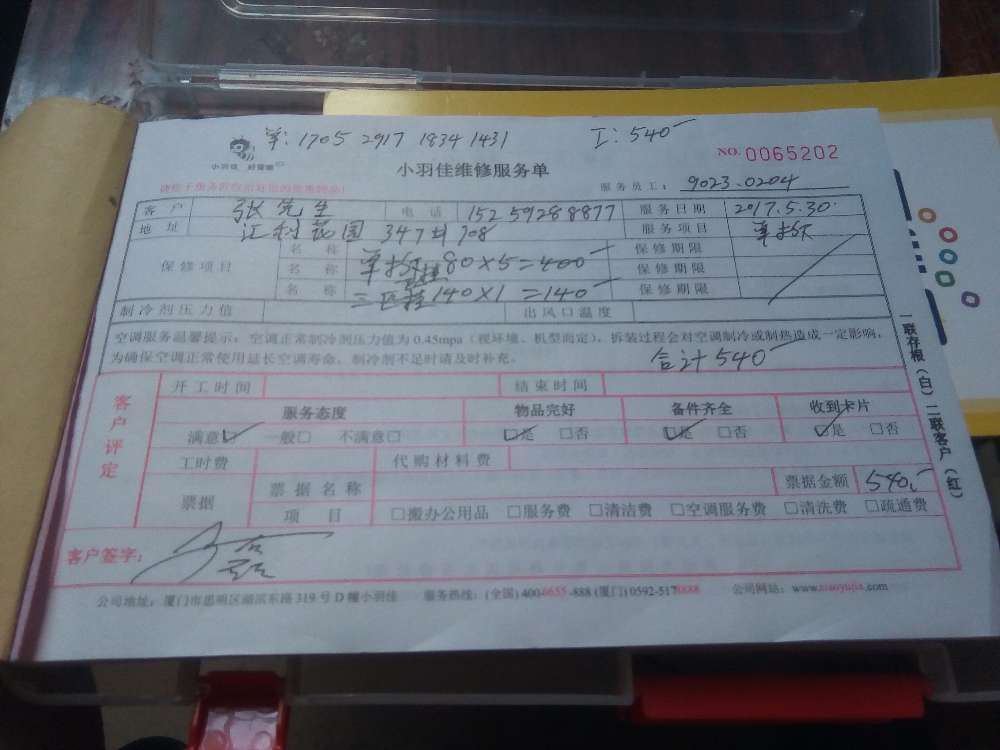 单:1705 2917 1834 1431 工:540
小羽佳 好管家
小羽佳维修服务单 NO.0065202
服务员工: 9023.0204
客户 张先生 电话 15259288877 服务日期 2017.5.30
地址 汇科花园 347 708 服务项目 单拆
保修项目 名称 保修期限
名称 单拆 80×5=400 保修期限
名称 三匹挂 140×1=140 保修期限
制冷剂压力值 出风口温度
空调服务温馨提示:空调正常制冷剂压力值为0.45mpa(视环境、机型而定),拆装过程会对空调制冷或制热造成一定影响,
为确保空调正常使用延长空调寿命,制冷剂不足时请及时补充。
合计540
客户评定
开工时间 结束时间
服务态度 物品完好 备件齐全 收到卡片
满意☑ 一般□ 不满意□ ☑是 □否 ☑是 □否 ☑是 □否
工时费 代购材料费
票据 票据名称 票据金额 540.
项目 □搬办公用品 □服务费 □清洁费 □空调服务费 □清洗费 □疏通费
客户签字:
公司地址:厦门市思明区湖滨东路319号D幢小羽佳 服务热线:(全国)400-0655-888(厦门)0592-5170888 公司网站:www.xiaoyujia.com
一联存根(白)二联客户(红)